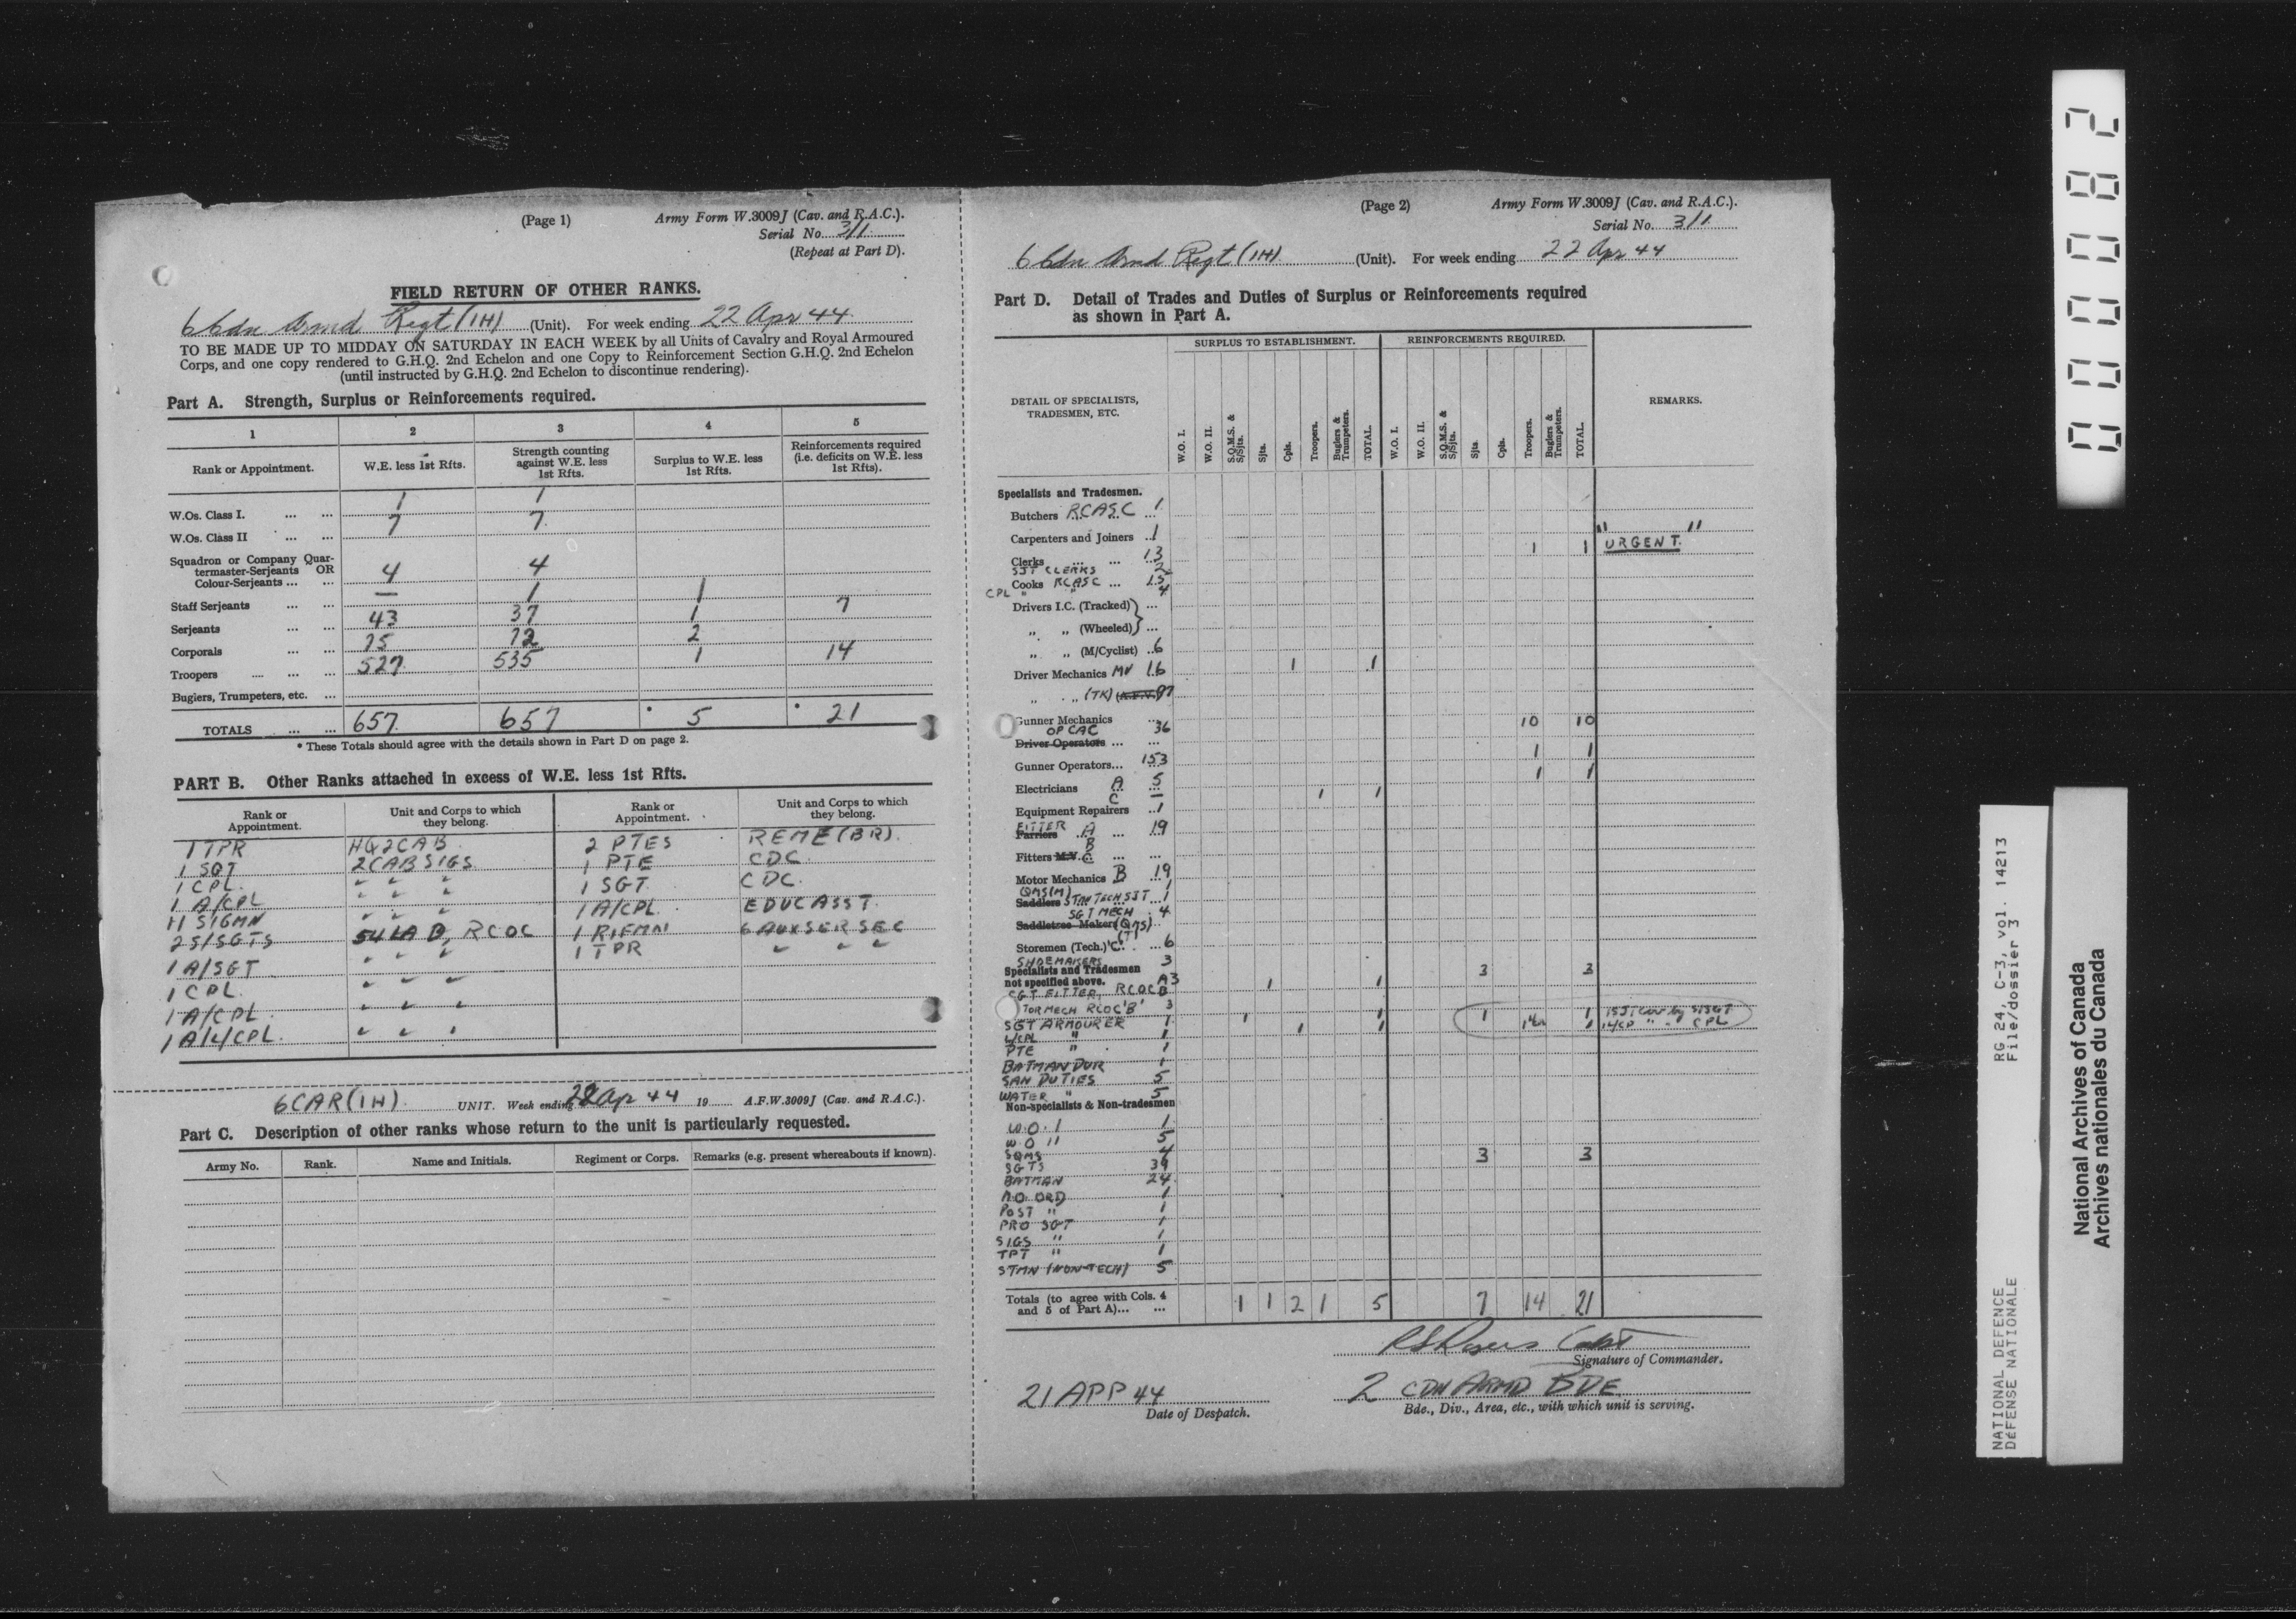 (Page 1) Army Form W.3009J (Cav. and R.A.C.).
Serial No. 3/1
(Repeat at Part D).
FIELD RETURN OF OTHER RANKS.
6 Cdn Armd Regt (1H) (Unit). For week ending 22 Apr 44
TO BE MADE UP TO MIDDAY ON SATURDAY IN EACH WEEK by all Units of Cavalry and Royal Armoured
Corps, and one copy rendered to G.H.Q. 2nd Echelon and one Copy to Reinforcement Section G.H.Q. 2nd Echelon
(until instructed by G.H.Q. 2nd Echelon to discontinue rendering).
Part A. Strength, Surplus or Reinforcements required.
1 2 3 4 5
Rank or Appointment. W.E. less 1st Rfts. Strength counting against W.E. less 1st Rfts. Surplus to W.E. less 1st Rfts. Reinforcements required (i.e. deficits on W.E. less 1st Rfts).
W.Os. Class I. ... ... 1 1
W.Os. Class II ... ... 7 7
Squadron or Company Quar-
termaster-Serjeants OR
Colour-Serjeants ... ... 4 4
Staff Serjeants ... ... — 1 1
Serjeants ... ... 43 37 1 7
Corporals ... ... 75 72 2
Troopers .... ... ... 527 535 1 14
Buglers, Trumpeters, etc. ...
TOTALS ... ... 657 657 * 5 * 21
* These Totals should agree with the details shown in Part D on page 2.
PART B. Other Ranks attached in excess of W.E. less 1st Rfts.
Rank or Appointment. Unit and Corps to which they belong. Rank or Appointment. Unit and Corps to which they belong.
1 TPR HQ 2 CAB 2 PTES REME (BR).
1 SGT 2 CAB SIGS 1 PTE CDC
1 CPL " " " 1 SGT CDC.
1 A/CPL " " " 1 A/CPL EDUC ASST.
11 SIGMN " " " 1 RIFMN 6 AUX SER SEC
2 S/SGTS 54 LAD, RCOC 1 TPR " " "
1 A/SGT " " "
1 CPL " " "
1 A/CPL " " "
1 A/L/CPL. " " "
6 CAR (1H) UNIT. Week ending 22 Apr 44 19 A.F.W.3009J (Cav. and R.A.C.).
Part C. Description of other ranks whose return to the unit is particularly requested.
Army No. Rank. Name and Initials. Regiment or Corps. Remarks (e.g. present whereabouts if known).
(Page 2) Army Form W.3009J (Cav. and R.A.C.).
Serial No. 3/1
6 Cdn Armd Regt (1H) (Unit). For week ending 22 Apr 44
Part D. Detail of Trades and Duties of Surplus or Reinforcements required
as shown in Part A.
SURPLUS TO ESTABLISHMENT. REINFORCEMENTS REQUIRED.
DETAIL OF SPECIALISTS, TRADESMEN, ETC. W.O. I. W.O. II. S.Q.M.S. & S/Sjts. Sjts. Cpls. Troopers. Buglers & Trumpeters. TOTAL. W.O. I. W.O. II. S.Q.M.S. & S/Sjts. Sjts. Cpls. Troopers. Buglers & Trumpeters. TOTAL. REMARKS.
Specialists and Tradesmen.
Butchers RCASC 1
Carpenters and Joiners 1 1 1 "URGENT."
Clerks 13
SJT CLERKS 2
Cooks RCASC ... 15
CPL " " 4
Drivers I.C. (Tracked) ...
" " (Wheeled) ...
" " (M/Cyclist) 6
Driver Mechanics MV 16 1 1
" " (TK) (A.F.V.) 97
Gunner Mechanics 10 10
OP CAC 36
Driver Operators ... ...
Gunner Operators... 153 1 1
Electricians A 5 1 1
C — 1 1
Equipment Repairers 1
FITTER Farriers A ... 19
B
Fitters M.V. C ... ...
Motor Mechanics B 19
QMS (M) 1
Saddlers STM TECH SJT ... 1
SGT MECH 4
Saddletree Maker (QMS)
(T)
Storemen (Tech.) 'C' ... 6
SHOEMAKERS 3
Specialists and Tradesmen 3 3
not specified above. A3 1 1
SGT FITTER RCOC B
TOR MECH RCOC 'B' 3
SGT ARMOURER 1 1 1 1 1
L/CPL " 1 1 1 1 CPL
PTE " 1
BATMAN DVR 1
SAN DUTIES 5
WATER " 5
Non-specialists & Non-tradesmen
W.O. I 1
W O II 5
SQMS 4 3 3
SGTS 39
BATMAN 24
RO ORD 1
POST " 1
PRO SGT 1
SIGS " 1
TPT " 1
STMN (NON-TECH) 5
Totals (to agree with Cols. 4
and 5 of Part A)... ... 1 1 2 1 5 7 14 21
Capt
Signature of Commander.
21 APR 44 2 CDN ARMD BDE
Date of Despatch. Bde., Div., Area, etc., with which unit is serving.
000082
NATIONAL DEFENCE RG 24, C-3, vol. 14213
DÉFENSE NATIONALE File/dossier 3
National Archives of Canada
Archives nationales du Canada